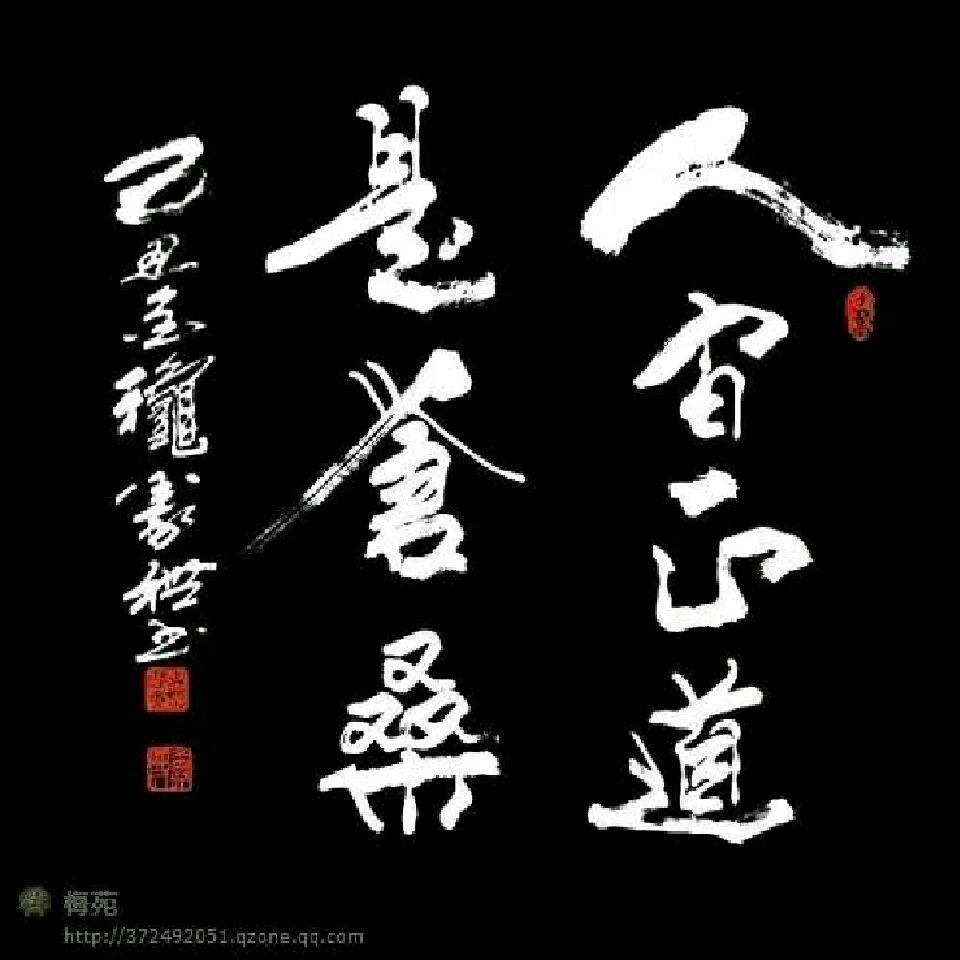 人间正道
是苍桑
己丑金秋
书
梅苑
http://372492051.qzone.qq.com